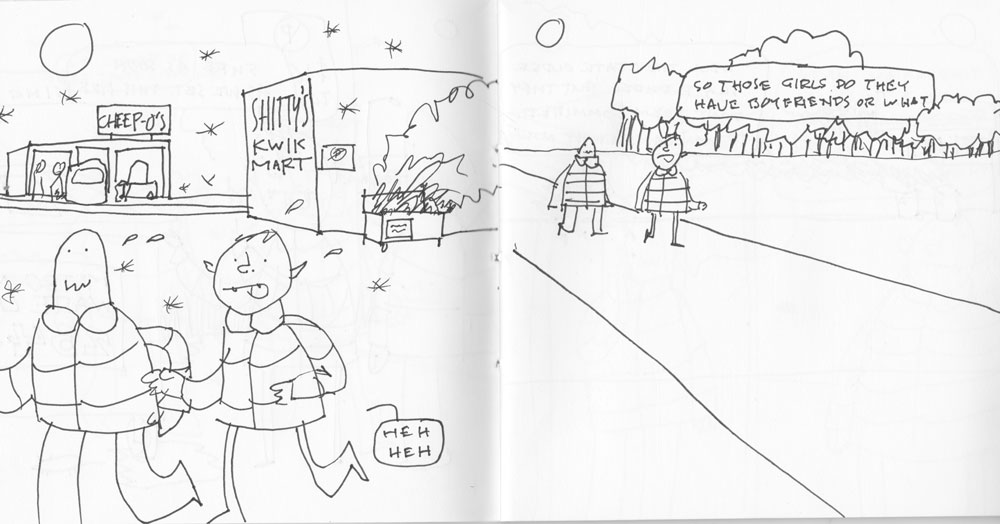 CHEEP-O'S
SHITTY'S
KWIK
MART
HEH
HEH
SO THOSE GIRLS DO THEY
HAVE BOYFRIENDS OR WHAT